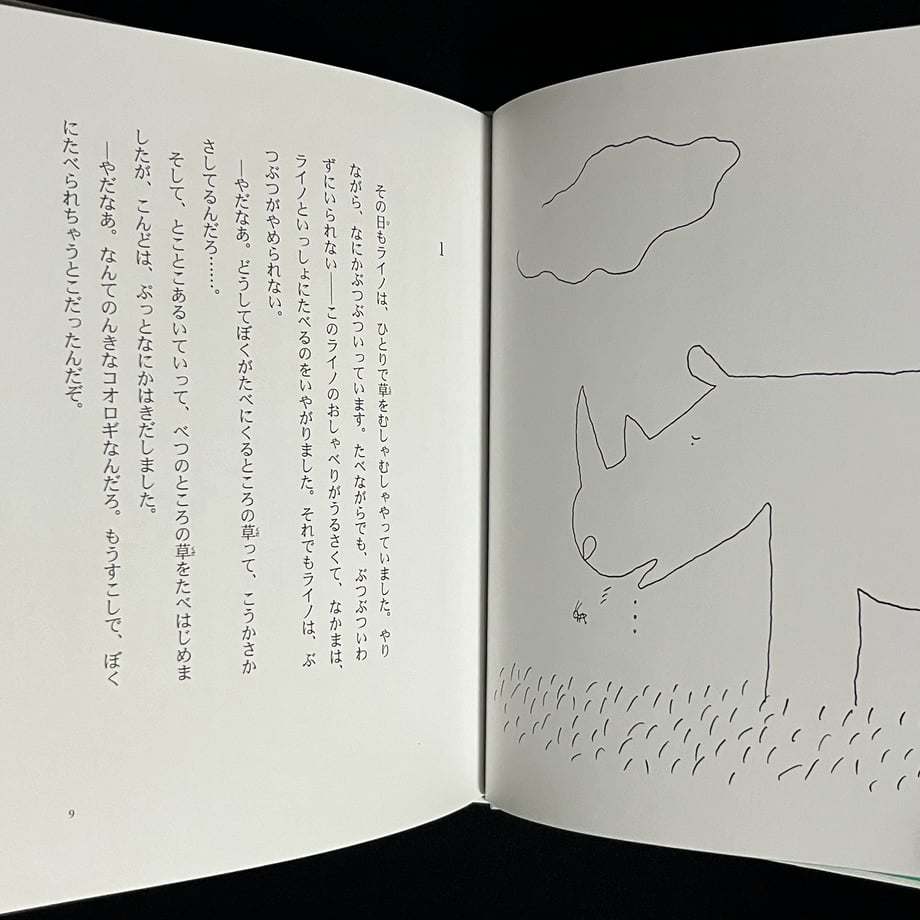 1
その日もライノは、ひとりで草をむしゃむしゃやっていました。やり
ながら、なにかぶつぶついっています。たべながらでも、ぶつぶついわ
ずにいられない――このライノのおしゃべりがうるさくて、なかまは、
ライノといっしょにたべるのをいやがりました。それでもライノは、ぶ
つぶつがやめられない。
―やだなあ。どうしてぼくがたべにくるところの草って、こうかさか
さしてるんだろ……。
そして、とことこあるいていって、べつのところの草をたべはじめま
したが、こんどは、ぷっとなにかはきだしました。
―やだなあ。なんてのんきなコオロギなんだろ。もうすこしで、ぼく
にたべられちゃうとこだったんだぞ。
9